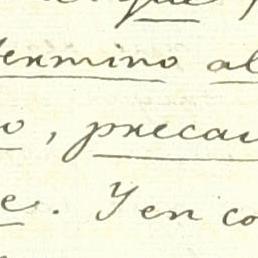 que
termino al
o, precau
e. Y en co